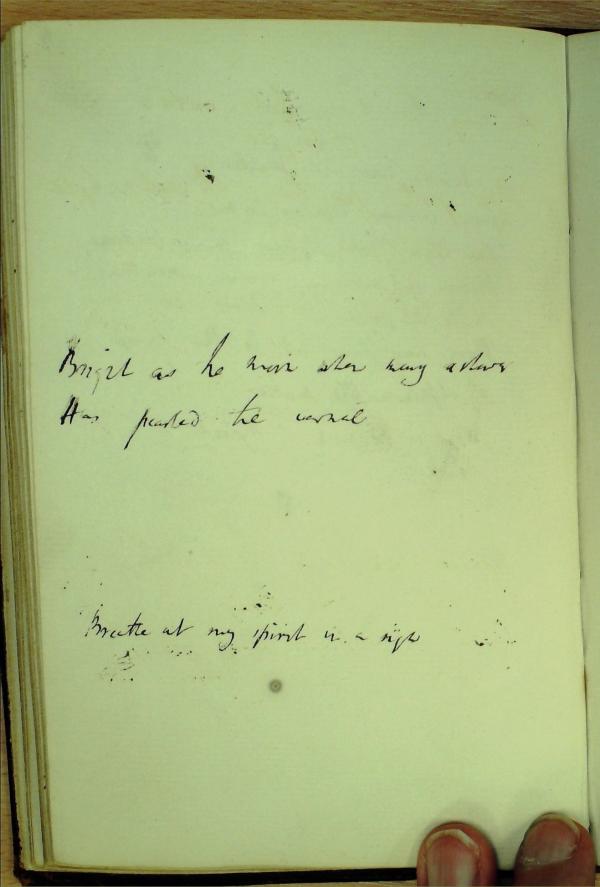 Bright as he morn when many a shower
Has pearled the vernal
Breathe at my spirit in a sigh